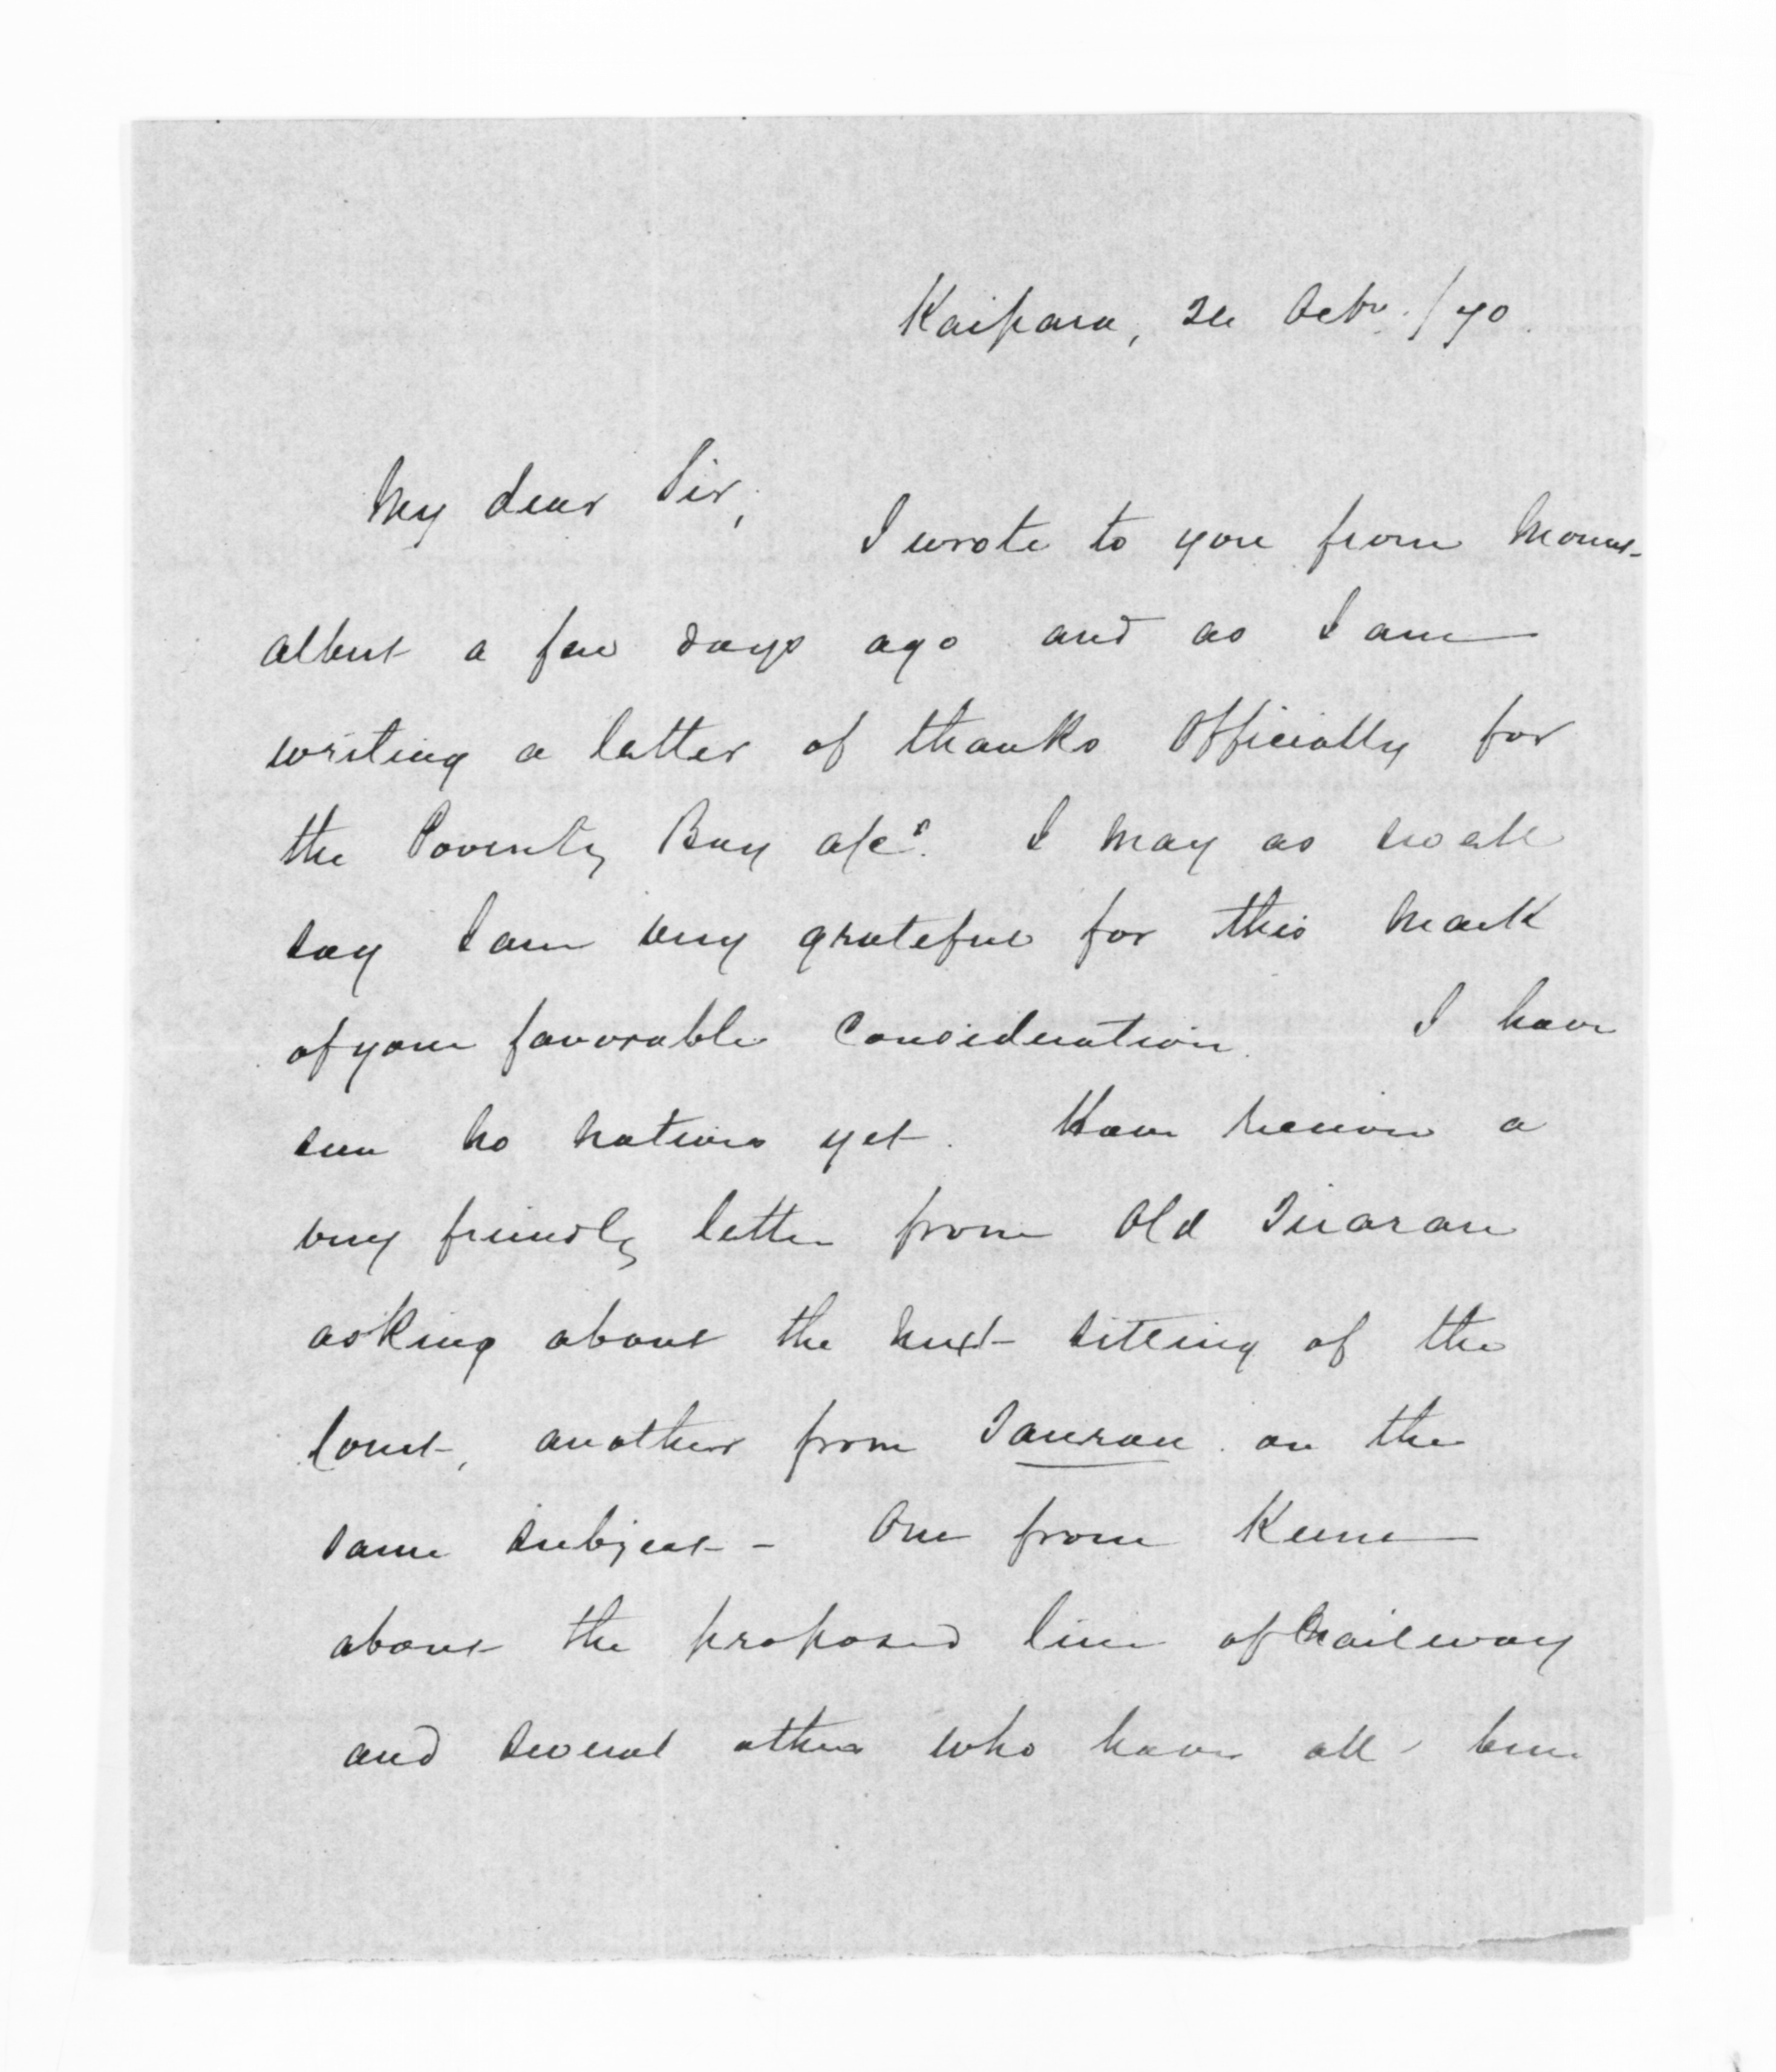 Kaipara, 24 Octr. /70.
My dear Sir,
I wrote to you from Mount-
albert a few days ago and as I am
writing a letter of thanks Officially for
the Poverty Bay a/cs. I may as well
say I am very grateful for this mark
of your favorable Consideration. I have
seen no natives yet. Have received a
very friendly letter from Old Tirarau
asking about the next sitting of the
Court, another from Taurau on the
same subject - One from Keene
about the proposed line of Railway
and several others who have all been